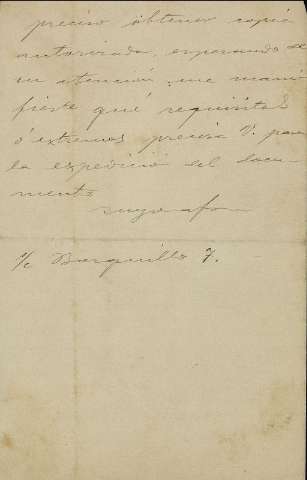 preciso obtener copia
autorizada, esperando de
su atención, me mani
fieste qué requisitos
ó extremos precisa V. para
la expedició del docu-
mento
suyo afmo
s/c Barquillo 7.